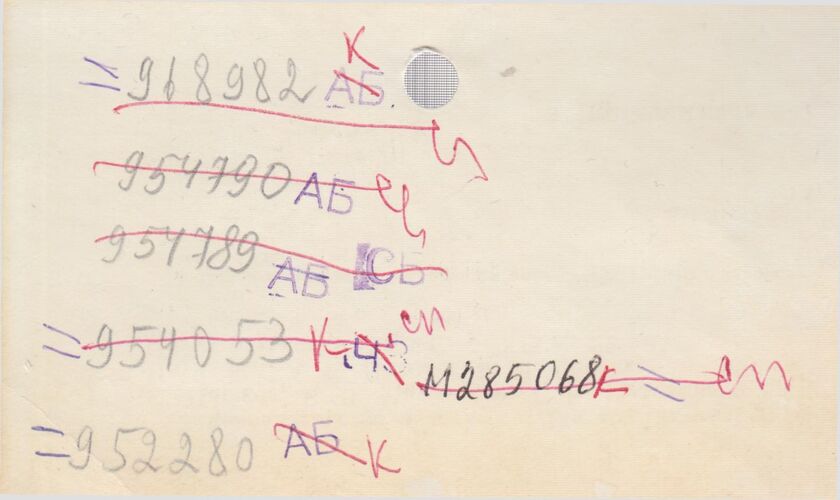 = 918982 АБ К
954790 АБ
954789 АБ СБ
= 954053 К сп
М285068 К = сп
= 952280 АБ К